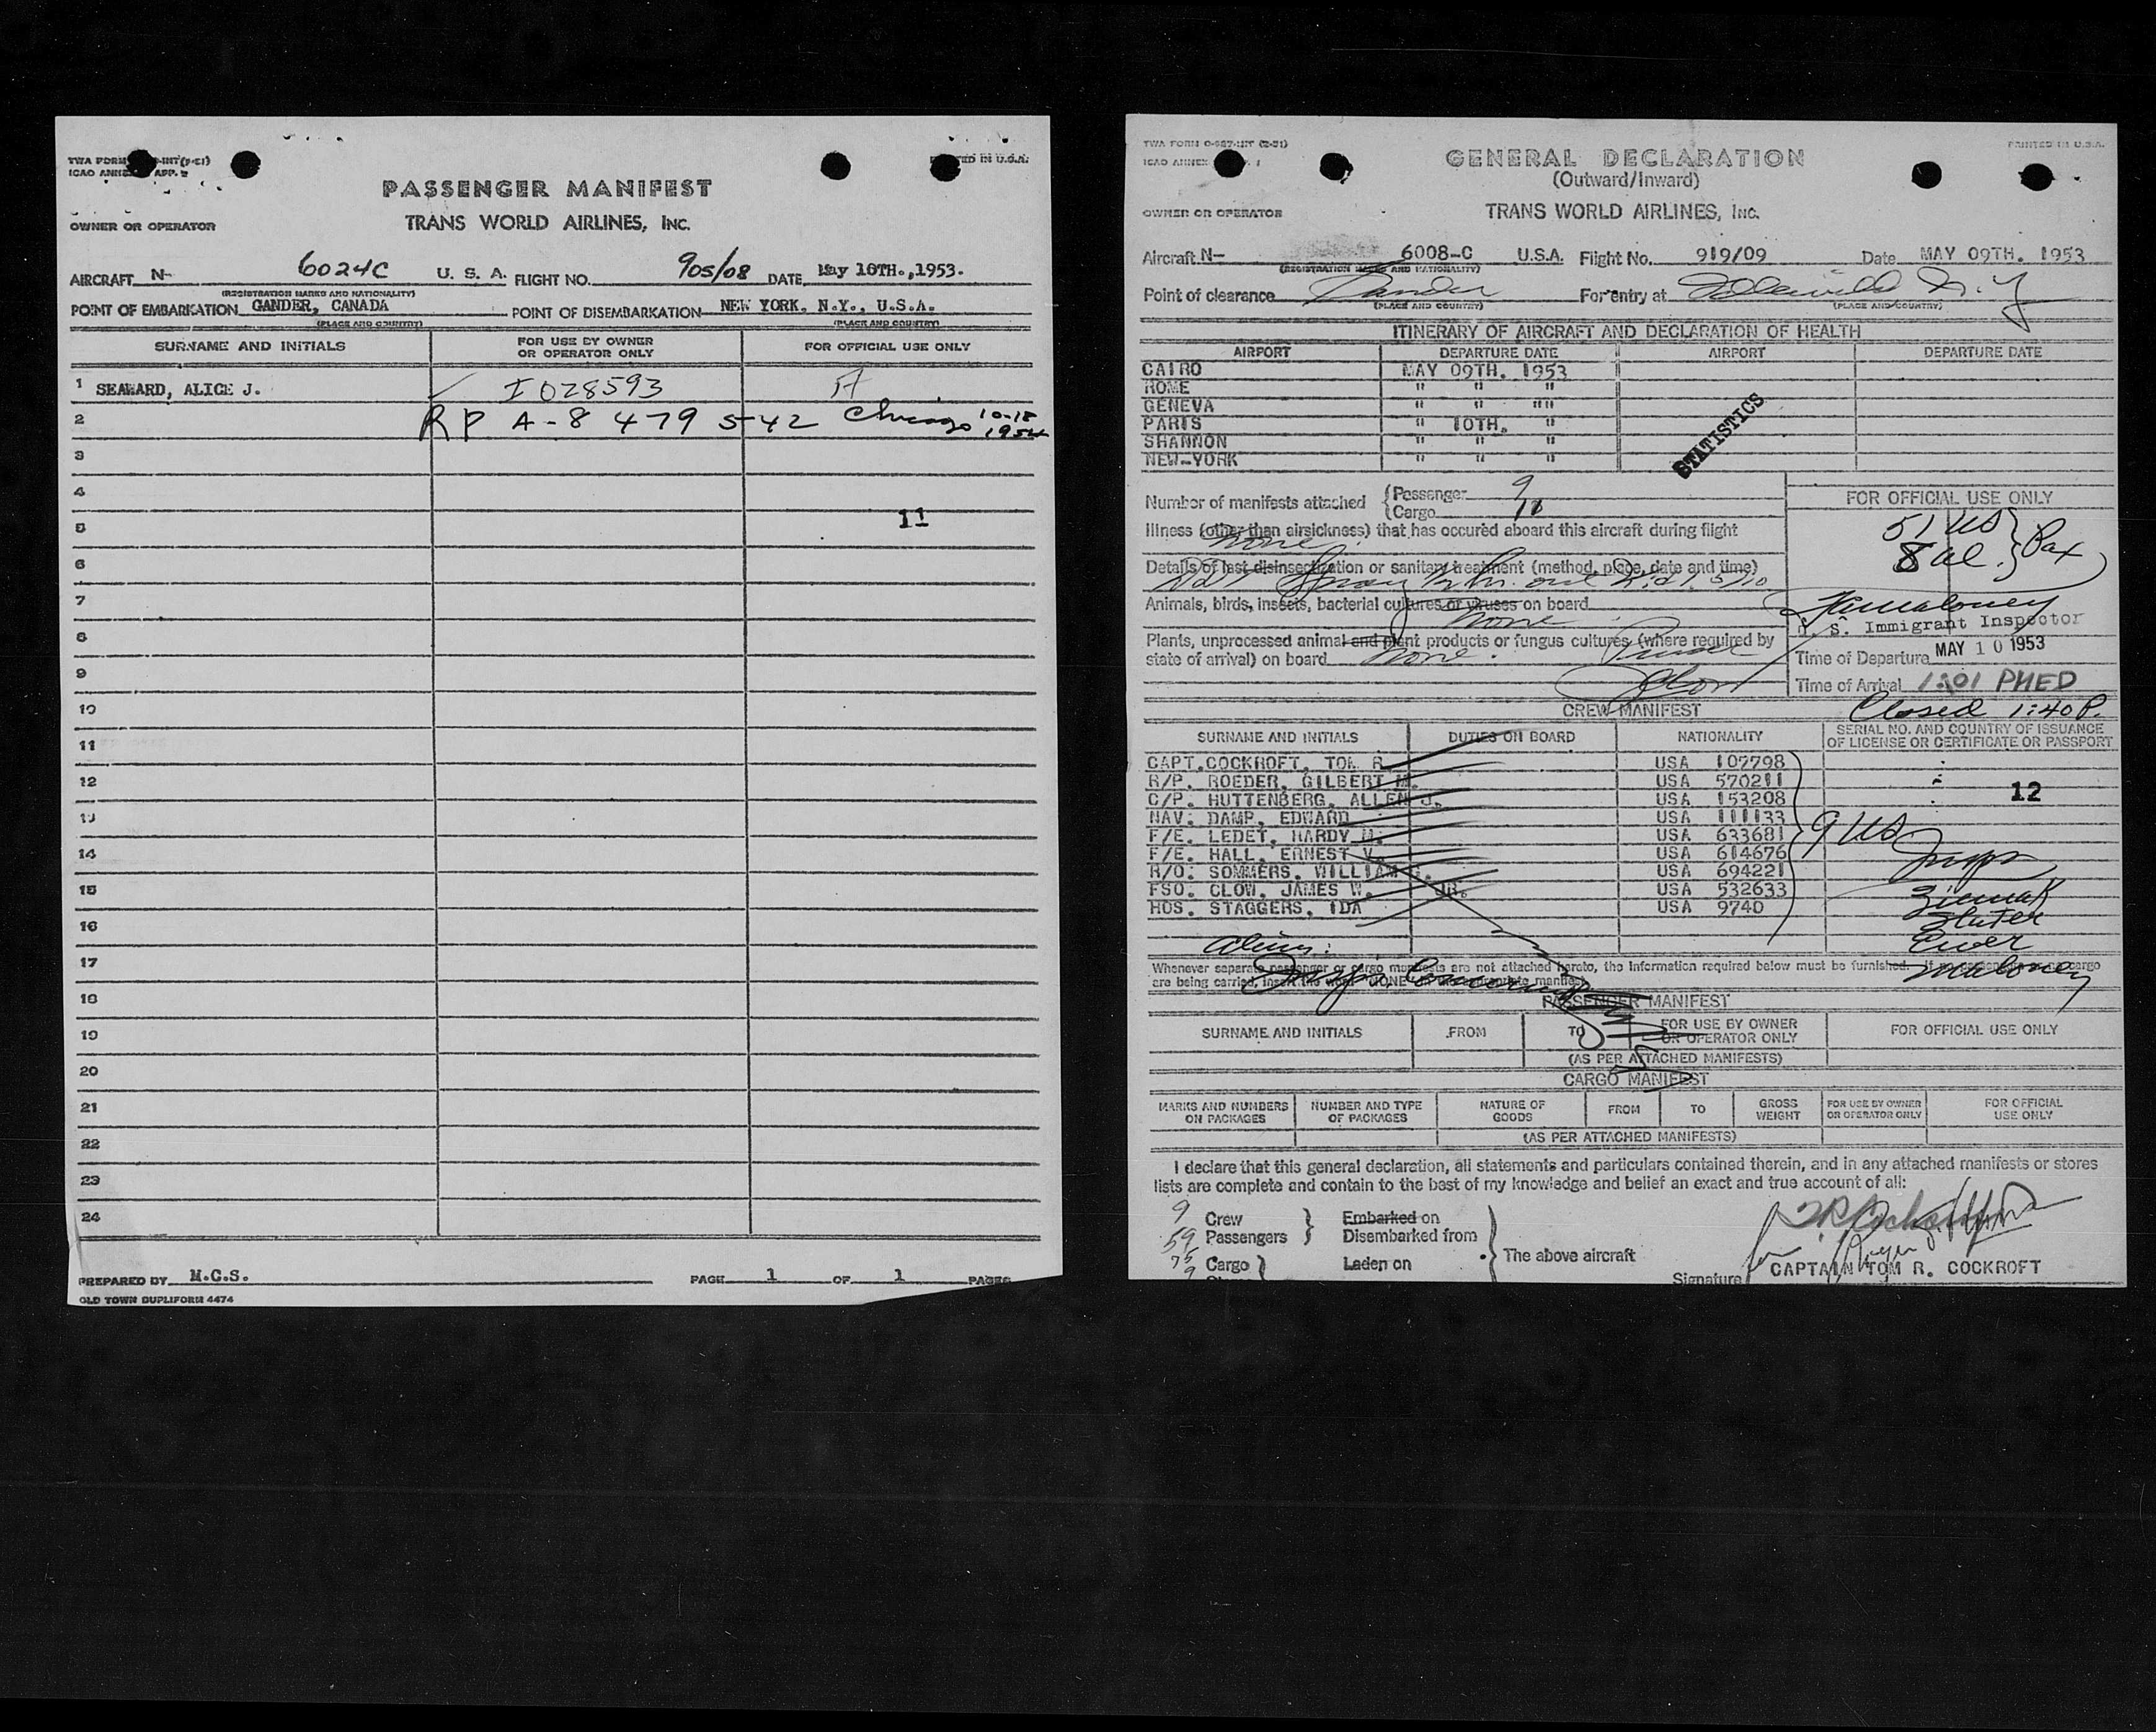 TWA FORM -INT(7-51)
ICAO ANNEX APP. 2
PRINTED IN U.S.A.
PASSENGER MANIFEST
OWNER OR OPERATOR TRANS WORLD AIRLINES, INC.
AIRCRAFT N- 6024C U. S. A. FLIGHT NO. 905/08 DATE May 10TH.,1953.
(REGISTRATION MARKS AND NATIONALITY)
POINT OF EMBARKATION GANDER, CANADA POINT OF DISEMBARKATION NEW YORK, N.Y., U.S.A.
(PLACE AND COUNTRY) (PLACE AND COUNTRY)
SURNAME AND INITIALS FOR USE BY OWNER OR OPERATOR ONLY FOR OFFICIAL USE ONLY
1 SEAWARD, ALICE J. I 028593 A
2 RP A-8 479 542 Chicago 10-18 1954
3
4
5 11
6
7
8
9
10
11
12
13
14
15
16
17
18
19
20
21
22
23
24
PREPARED BY M.C.S. PAGE 1 OF 1 PAGES
OLD TOWN DUPLIFORM 4474
TWA FORM O-987-INT (2-51)
ICAO ANNEX
PRINTED IN U.S.A.
GENERAL DECLARATION
(Outward/Inward)
OWNER OR OPERATOR TRANS WORLD AIRLINES, INC.
Aircraft N- 6008-C U.S.A. Flight No. 919/09 Date MAY 09TH. 1953
(REGISTRATION MARKS AND NATIONALITY)
Point of clearance Gander For entry at Idlewild N.Y
(PLACE AND COUNTRY) (PLACE AND COUNTRY)
ITINERARY OF AIRCRAFT AND DECLARATION OF HEALTH
AIRPORT DEPARTURE DATE AIRPORT DEPARTURE DATE
CAIRO MAY 09TH. 1953
ROME " " "
GENEVA " " ""
PARIS " 10TH. "
SHANNON " " "
NEW-YORK " " "
STATISTICS
Number of manifests attached {Passenger 9
{Cargo 18
FOR OFFICIAL USE ONLY
51 US } Pax
8 al.
Illness (other than airsickness) that has occured aboard this aircraft during flight
None
Details of last disinsectization or sanitary treatment (method, place, date and time)
Animals, birds, insects, bacterial cultures or viruses on board
None
Plants, unprocessed animal and plant products or fungus cultures (where required by
state of arrival) on board None.
Maloney
U. S. Immigrant Inspector
Time of Departure MAY 10 1953
Time of Arrival 1201 PHED
Closed 1:40 P.
CREW MANIFEST
SURNAME AND INITIALS DUTIES ON BOARD NATIONALITY SERIAL NO. AND COUNTRY OF ISSUANCE OF LICENSE OR CERTIFICATE OR PASSPORT
CAPT.COCKROFT, TOM R. USA 107798
R/P. ROEDER, GILBERT M. USA 570211
C/P. HUTTENBERG, ALLEN J. USA 153208 12
NAV: DAMP, EDWARD USA 111133
F/E. LEDET, HARDY USA 633681 9 US
F/E. HALL, ERNEST V. USA 614676
R/O: SOMMERS, WILLIAM USA 694221
FSO. CLOW, JAMES W. JR. USA 532633
HOS. STAGGERS, IDA USA 9740
Insps
Slater
Maloney
Whenever separate passenger or cargo manifests are not attached hereto, the information required below must be furnished.
PASSENGER MANIFEST
SURNAME AND INITIALS FROM TO FOR USE BY OWNER OR OPERATOR ONLY FOR OFFICIAL USE ONLY
(AS PER ATTACHED MANIFESTS)
CARGO MANIFEST
MARKS AND NUMBERS ON PACKAGES NUMBER AND TYPE OF PACKAGES NATURE OF GOODS FROM TO GROSS WEIGHT FOR USE BY OWNER OR OPERATOR ONLY FOR OFFICIAL USE ONLY
(AS PER ATTACHED MANIFESTS)
I declare that this general declaration, all statements and particulars contained therein, and in any attached manifests or stores
lists are complete and contain to the best of my knowledge and belief an exact and true account of all:
9 Crew } Embarked on
59 Passengers Disembarked from
75 Cargo } Laden on } The above aircraft
9
Signature CAPTAIN TOM R. COCKROFT